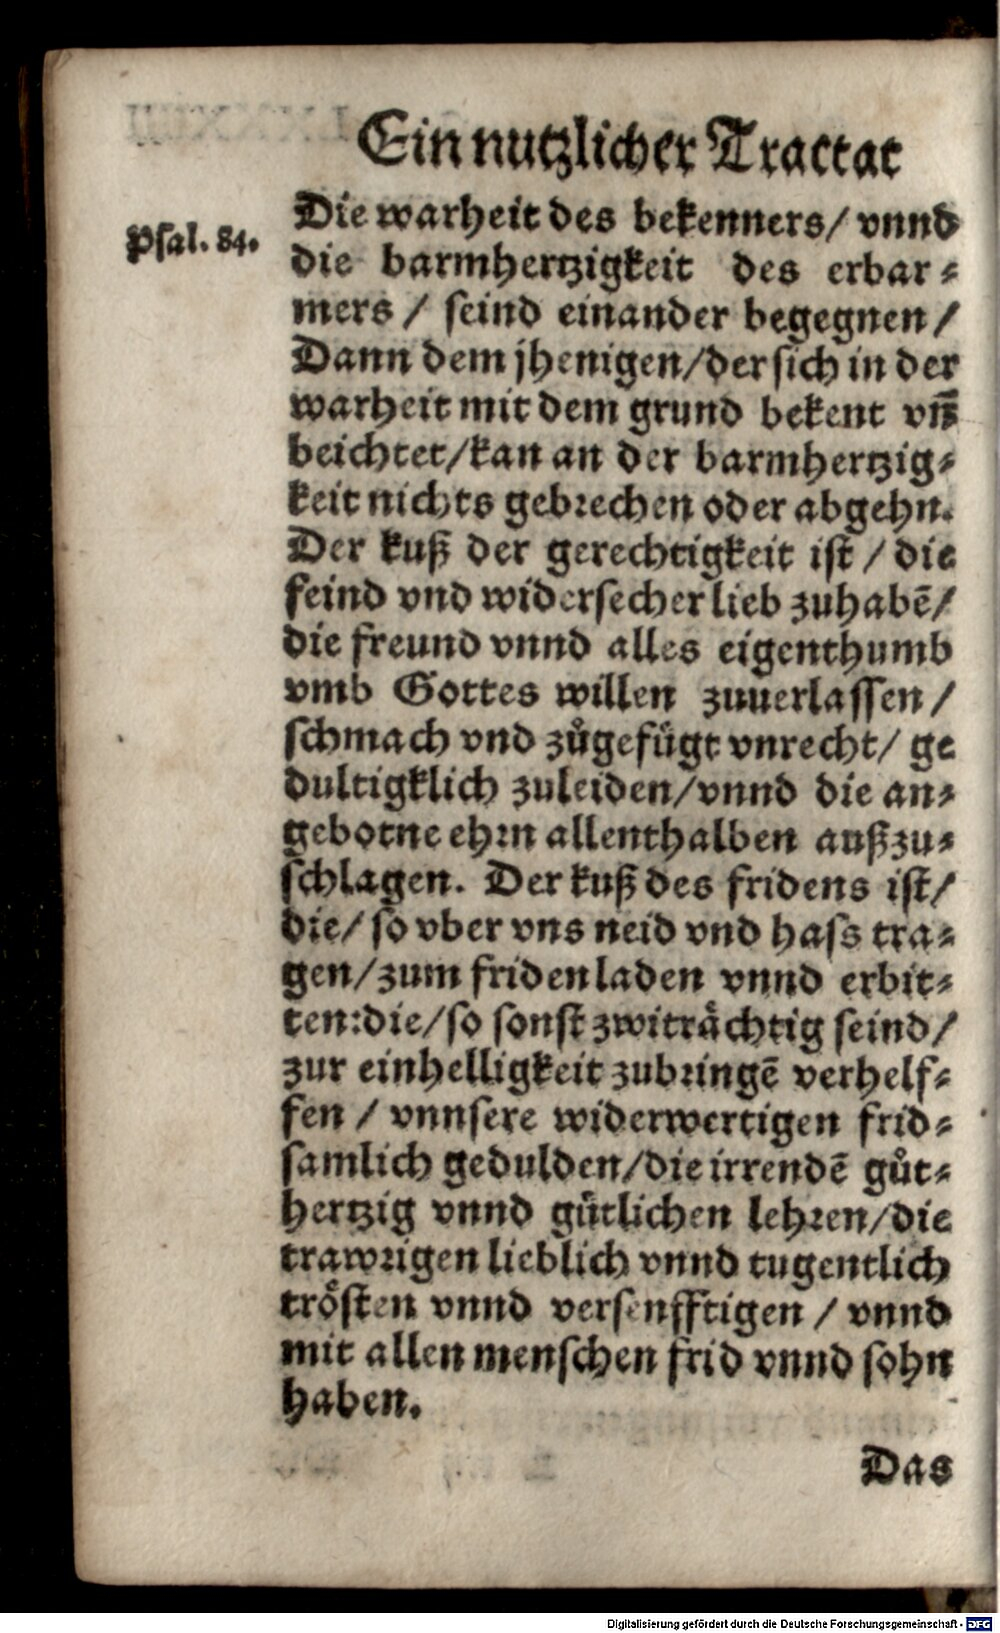 Ein nutzlicher Tractat
Psal. 84.
Die warheit des bekenners/ vnnd
die barmhertzigkeit des erbar⸗
mers / seind einander begegnen /
Dann dem jhenigen/der sich in der
warheit mit dem grund bekent vn̄
beichtet/kan an der barmhertzig⸗
keit nichts gebrechen oder abgehn.
Der kuß der gerechtigkeit ist / die
feind vnd widersecher lieb zuhabē/
die freund vnnd alles eigenthumb
vmb Gottes willen zuuerlassen /
schmach vnd zůgefügt vnrecht/ ge
dultigklich zuleiden/vnnd die an⸗
gebotne ehrn allenthalben außzu⸗
schlagen. Der kuß des fridens ist/
die/ so vber vns neid vnd hass tra⸗
gen/zum friden laden vnnd erbit⸗
ten:die/so sonst zwiträchtig seind/
zur einhelligkeit zubringē verhelf⸗
fen / vnnsere widerwertigen frid⸗
samlich gedulden/die irrendē gůt⸗
hertzig vnnd gütlichen lehren/die
trawrigen lieblich vnnd tugentlich
trösten vnnd versenfftigen / vnnd
mit allen menschen frid vnnd sohn
haben.
Das
Digitalisierung gefördert durch die Deutsche Forschungsgemeinschaft - DFG